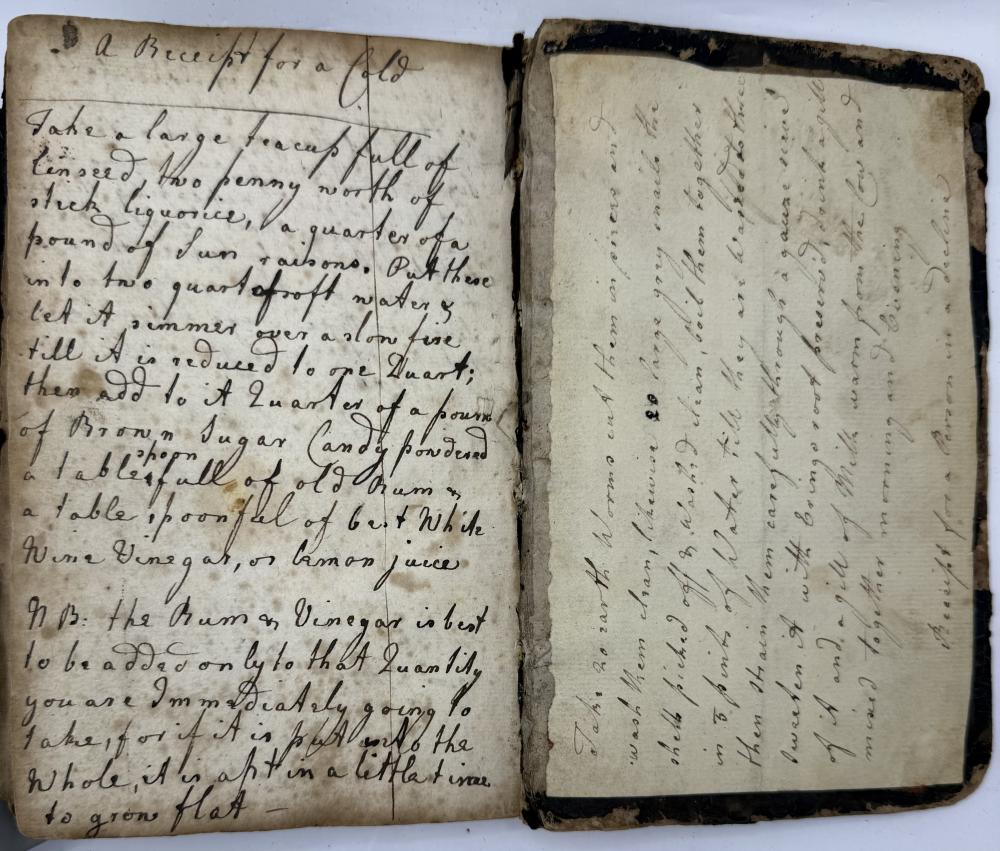 A Receipt for a Cold
Take a large teacup full of
linseed, two penny worth of
stick liquorice, a quarter of a
pound of Sun raisons. Put these
into two quarts of soft water &
let it simmer over a slow fire
till it is reduced to one Quart;
then add to it Quarter of a pound
of Brown Sugar Candy powdered
a table spoon full of old Rum &
a table spoonful of best White
Wine Vinegar, or lemon juice
NB: the Rum & Vinegar is best
to be added only to that Quantity
you are Immediately going to
take, for if it is put into the
Whole, it is apt in a little time
to grow flat —
Take 20 earth Worms cut them in pieces and
wash them clean, likewise 20 large grey snails the
shells picked off & washd clean, boil them together
in 5 pints of Water till they are wasted to three
then strain them carefully through a gauze sieve
sweeten it with Eringo root preserved, drink a gill
of it and a gill of Milk warm from the Cow and
mixed together morning and Evening
Receipt for a Person in a decline